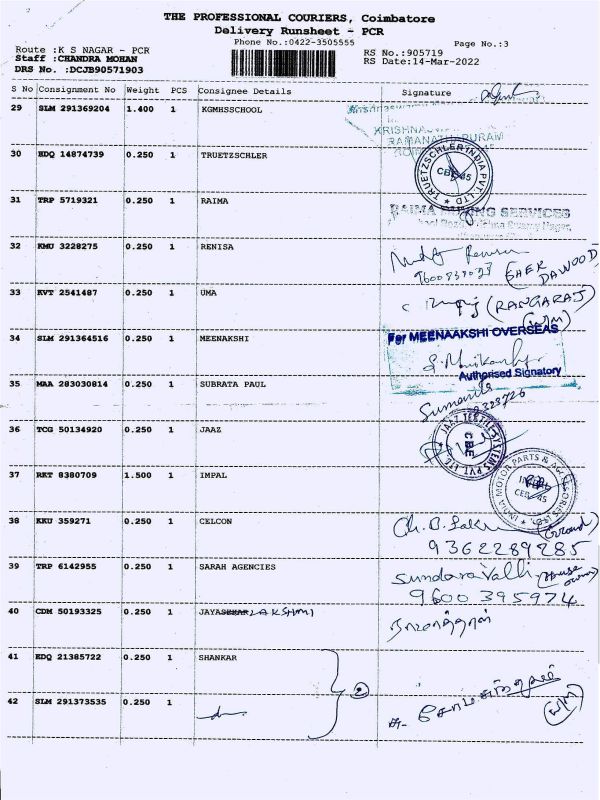 THE PROFESSIONAL COURIERS, Coimbatore
Delivery Runsheet - PCR
Phone No.:0422-3505555
Page No.:3
Route :K S NAGAR - PCR
Staff :CHANDRA MOHAN
DRS No. :DCJB90571903
RS No.:905719
RS Date:14-Mar-2022
S No Consignment No Weight PCS Consignee Details Signature
29 SLM 291369204 1.400 1 KGMHSSCHOOL
RAMANATHAPURAM
30 EDQ 14874739 0.250 1 TRUETZSCHLER
TRUETZSCHLER INDIA PVT. LTD.
CBE-45
31 TRP 5719321 0.250 1 RAIMA
32 KMU 3228275 0.250 1 RENISA
(SHEK DAWOOD)
33 KVT 2541487 0.250 1 UMA
(RANGARAJ)
34 SLM 291364516 0.250 1 MEENAKSHI
For MEENAAKSHI OVERSEAS
Authorised Signatory
35 MAA 283030814 0.250 1 SUBRATA PAUL
36 TCG 50134920 0.250 1 JAAZ
JAAZ TEXTILE SYSTEMS PVT. LTD.
CBE
37 RKT 8380709 1.500 1 IMPAL
INDIA MOTOR PARTS & ACCESSORIES LTD.
CBE-45
38 KKU 359271 0.250 1 CELCON
9362289285
39 TRP 6142955 0.250 1 SARAH AGENCIES
Sundaravalli (House owner)
9600 395974
40 CDM 50193325 0.250 1 JAYALAKSHMI
41 EDQ 21385722 0.250 1 SHANKAR
2
42 SLM 291373535 0.250 1